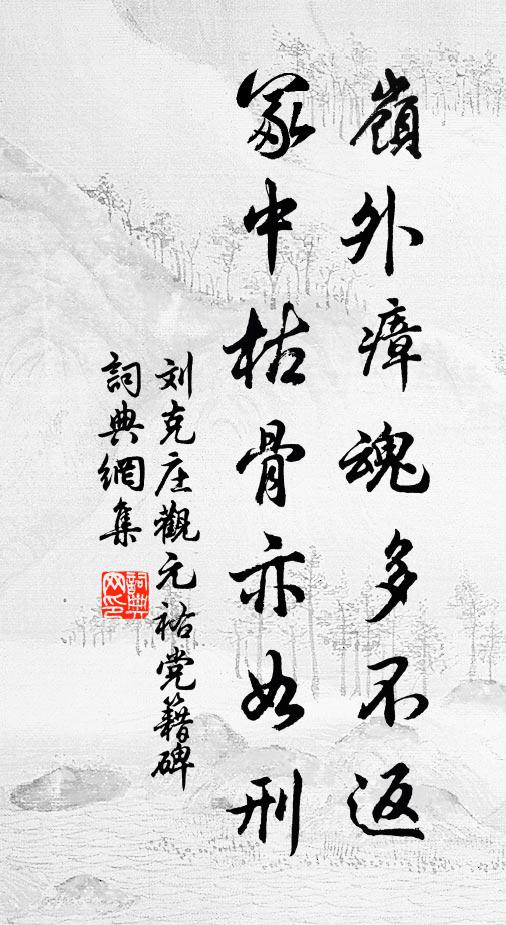 嶺外瘴魂多不返
冢中枯骨亦如刑
刘克庄觀元祐党籍碑
詞典網集
詞典網印